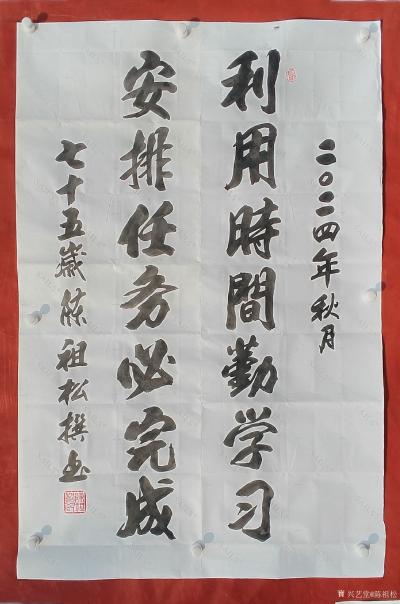 二〇二四年秋月
利用時間勤学习
安排任务必完成
七十五歲陈祖松撰书
兴艺堂#陈祖松